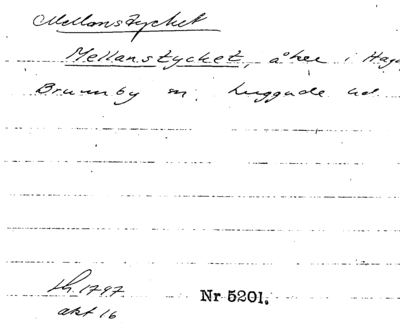 Mellanstycket
Mellanstycket, åker i Hag
Brunnby sn. Luggude hd.
Lh. 1797
akt 16
Nr 5201.